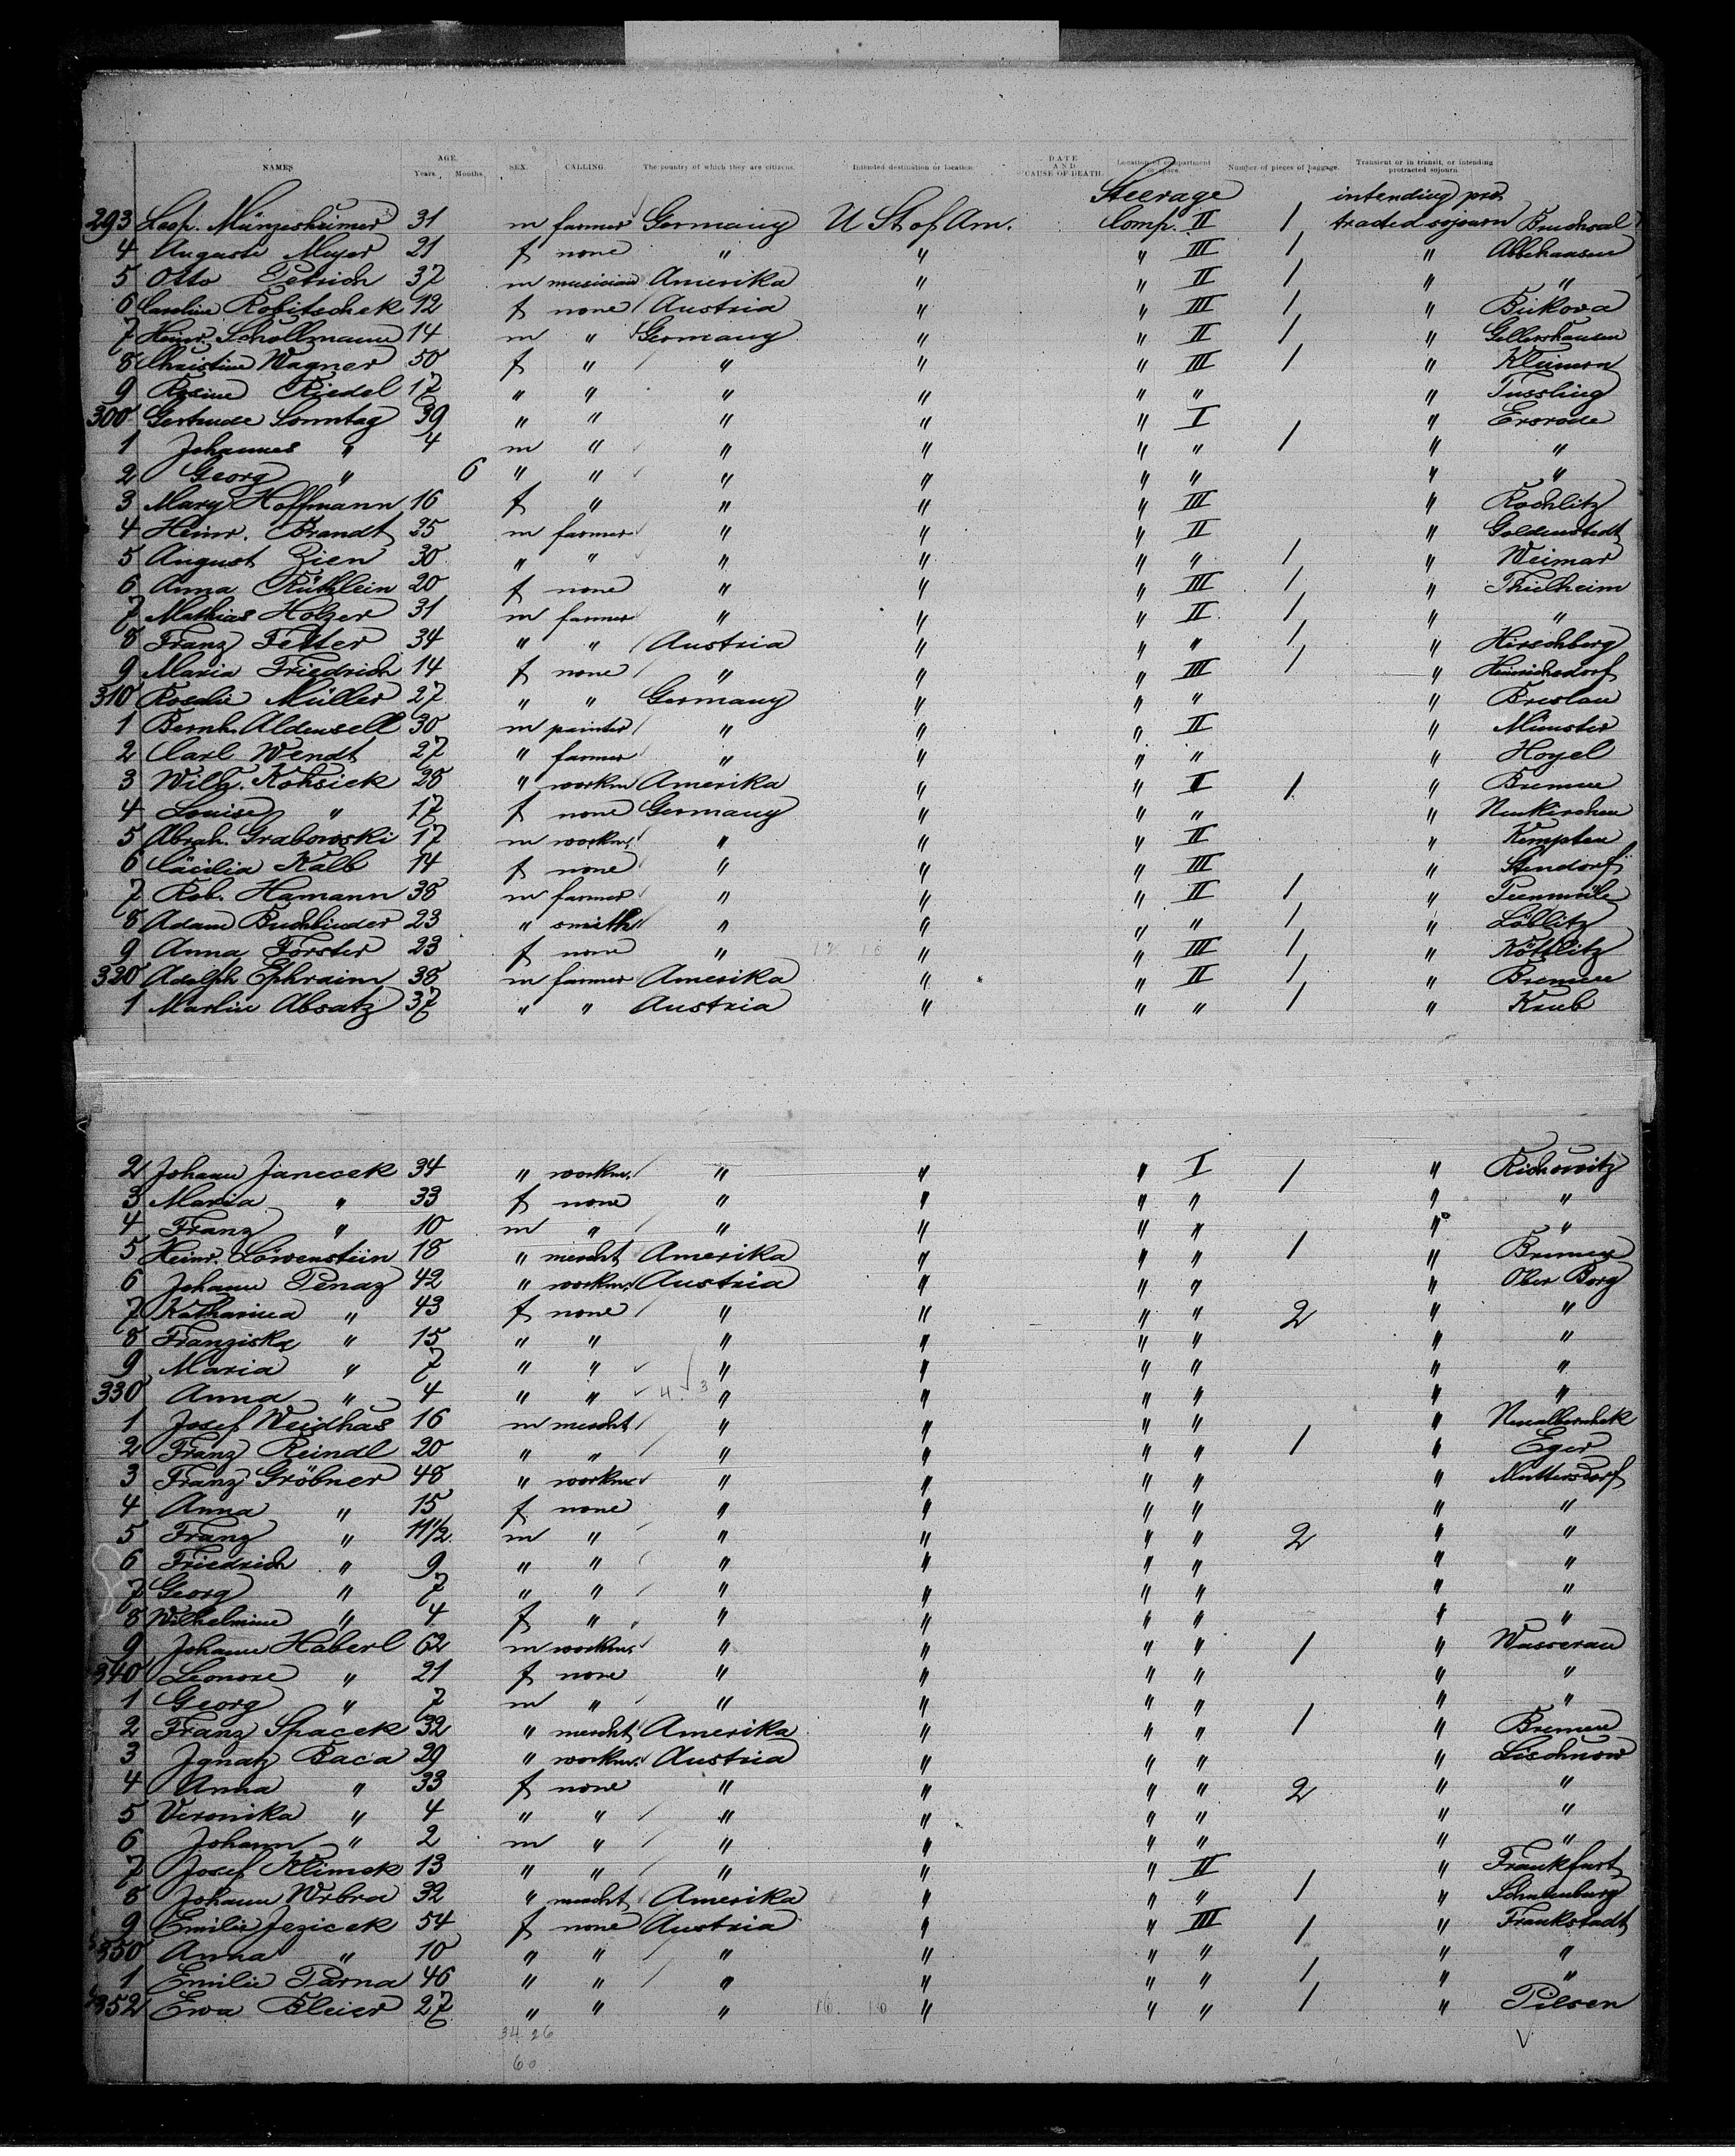 NAMES AGE. Years. Months. SEX. CALLING. The country of which they are citizens. Intended destination or location. DATE AND CAUSE OF DEATH. Location of compartment or space. Number of pieces of baggage. Transient or in transit, or intending protracted sojourn.
Steerage intending pro
293 Leop. Münzesheimer 31 m farmer Germany U St of Am. Comp. II 1 tracted sojourn Bruchsal
4 Auguste Meyer 21 f none " " " III 1 " Abbehausen
5 Otto Petrich 37 m musician Amerika " " II 1 " "
6 Caroline Robitschek 12 f none Austria " " III 1 " Bukova
7 Heinr. Schollmann 14 m " Germany " " II 1 " Gellershausen
8 Christine Wagner 50 f " " " " III 1 "
9 Rosine Riedel 17 " " " " " " " Tussling
300 Gertrude Sonntag 39 " " " " " I " Ersrode
1 Johannes " 4 m " " " " " 1 " "
2 Georg " 6 " " " " " " " "
3 Mary Hoffmann 16 f " " " " III " Rochlitz
4 Heinr. Brandt 25 m farmer " " " II " Goldenstedt
5 August Zien 30 " " " " " " 1 " Weimar
6 Anna Rüthlein 20 f none " " " III 1 " Theilheim
7 Mathias Holzer 31 m farmer " " " II 1 " "
8 Franz Fetter 34 " " Austria " " " 1 " Hirschberg
9 Maria Friedrich 14 f none " " " III 1 " Heinrichsdorf
310 Rosalie Müller 27 " " Germany " " " " Breslau
1 Bernh. Aldensell 30 m painter " " " II " Münster
2 Carl Wendt 27 " farmer " " " " " Hoyel
3 Wilh. Kohsiek 28 " workm Amerika " " II 1 " Bremen
4 Louise " 17 f none Germany " " " " Neukirchen
5 Abrah. Grabowski 17 m workm. " " " II " Kempten
6 Cäcilia Kalb 14 f none " " " III " Stendorf
7 Rob. Hamann 38 m farmer " " " II 1 "
8 Adam Buchbinder 23 " smith " " " " 1 " Löblitz
9 Anna Forster 23 f none " " " III 1 " Köttlitz
320 Adolph Ephraim 38 m farmer Amerika " " II 1 " Bremen
1 Martin Absatz 37 " " Austria " " " 1 "
2 Johann Janecek 34 " workm. " " " I 1 " Richowitz
3 Maria " 33 f none " " " " " "
4 Franz " 10 m " " " " " " "
5 Heinr. Löwenstein 18 " mercht Amerika " " " 1 " Bremen
6 Johann Penaz 42 " workm. Austria " " " " Ober Borg
7 Katharina " 43 f none " " " " 2 " "
8 Franziska " 15 " " " " " " " "
9 Maria " 7 " " " " " " " "
330 Anna " 4 " " 4 3 " " " " " "
1 Josef Weidhas 16 m mercht " " " " "
2 Franz Reindl 20 " " " " " " 1 " Eger
3 Franz Gröbner 48 " workm " " " " " Muttersdorf
4 Anna " 15 f none " " " " " "
5 Franz " 11 1/2 m " " " " " 2 " "
6 Friedrich " 9 " " " " " " " "
7 Georg " 7 " " " " " " " "
8 Wilhelmine " 4 f " " " " " " "
9 Johann Haberl 62 m workm. " " " " 1 " Wasserau
340 Leonore " 21 f none " " " " " "
1 Georg " 7 m " " " " " " "
2 Franz Spacek 32 " mercht Amerika " " " 1 " Bremen
3 Ignatz Baca 29 " workm. Austria " " " " Lischnow
4 Anna " 33 f none " " " " 2 " "
5 Veronika " 4 " " " " " " " "
6 Johann " 2 m " " " " " " "
7 Josef Klimek 13 " " " " " II " Frankfurt
8 Johann Wrbra 32 " mercht Amerika " " " 1 "
9 Emilie Jezicek 54 f none Austria " " III 1 " Frankstadt
350 Anna " 10 " " " " " " " "
1 Emilie Parna 46 " " " " " " 1 " "
352 Ewa Bleier 27 " " " 16 10 " " " 1 " Pilsen
34 26
60